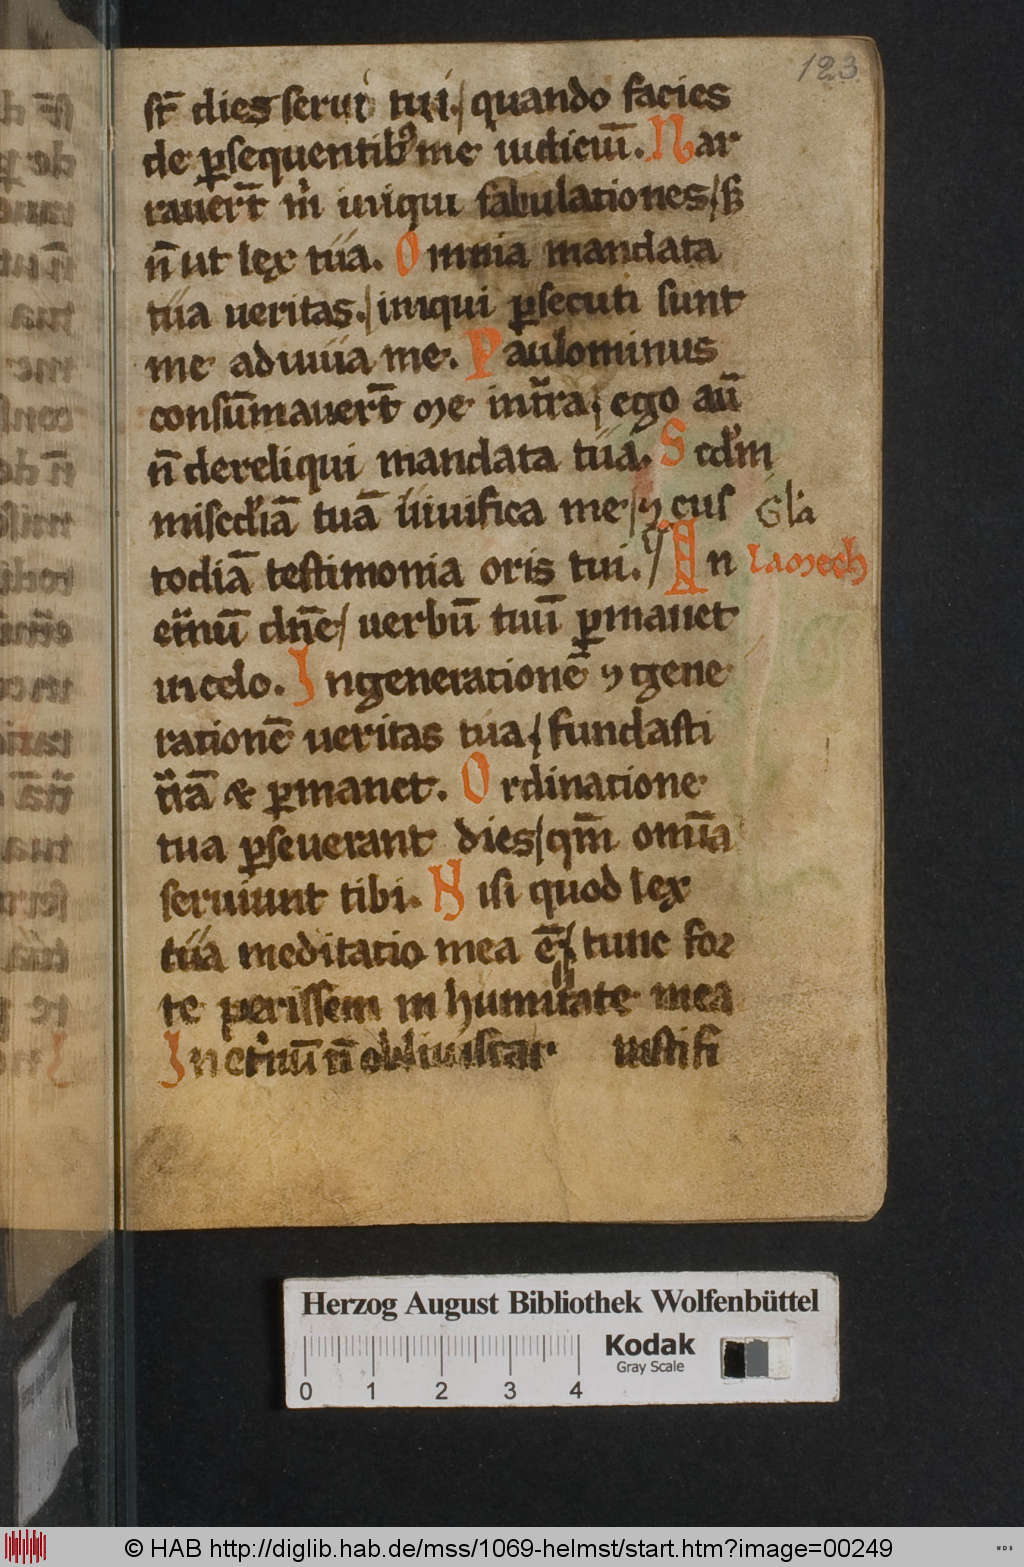 123
st̄ dies serui tui./quando facies
de ꝑsequentibꝰ me iudiciū. Nar
rauert̄ m̍ iniqui fabulationes/sꝫ
n̄ ut lex tua. Omnia mandata
tua ueritas./iniqui ꝑsecuti sunt
me adiuua me. Paulominus
consūmauert̄ me in tͣra/ego aū
n̄ dereliqui mandata tua. Scd̍m
misc̍diā tuā uiuifica me/⁊ cus
Gl̍a
todiā testimonia oris tui./ In
Lamech
et̍nū dn̄e/uerbū tuū ꝑmanet
in celo. In generationē ⁊ gene
rationē ueritas tua/fundasti
t̍rā & ꝑmanet. Ordinatione
tua ꝑseuerant dies/qm̄ om̄ia
seruiunt tibi. Nisi quod lex
tua meditatio mea ē/tunc for
te perissem in humilitate mea
In et̍nū n̄ obliuiscar iustifi
Herzog August Bibliothek Wolfenbüttel
Kodak
Gray Scale
0 1 2 3 4
© HAB http://diglib.hab.de/mss/1069-helmst/start.htm?image=00249